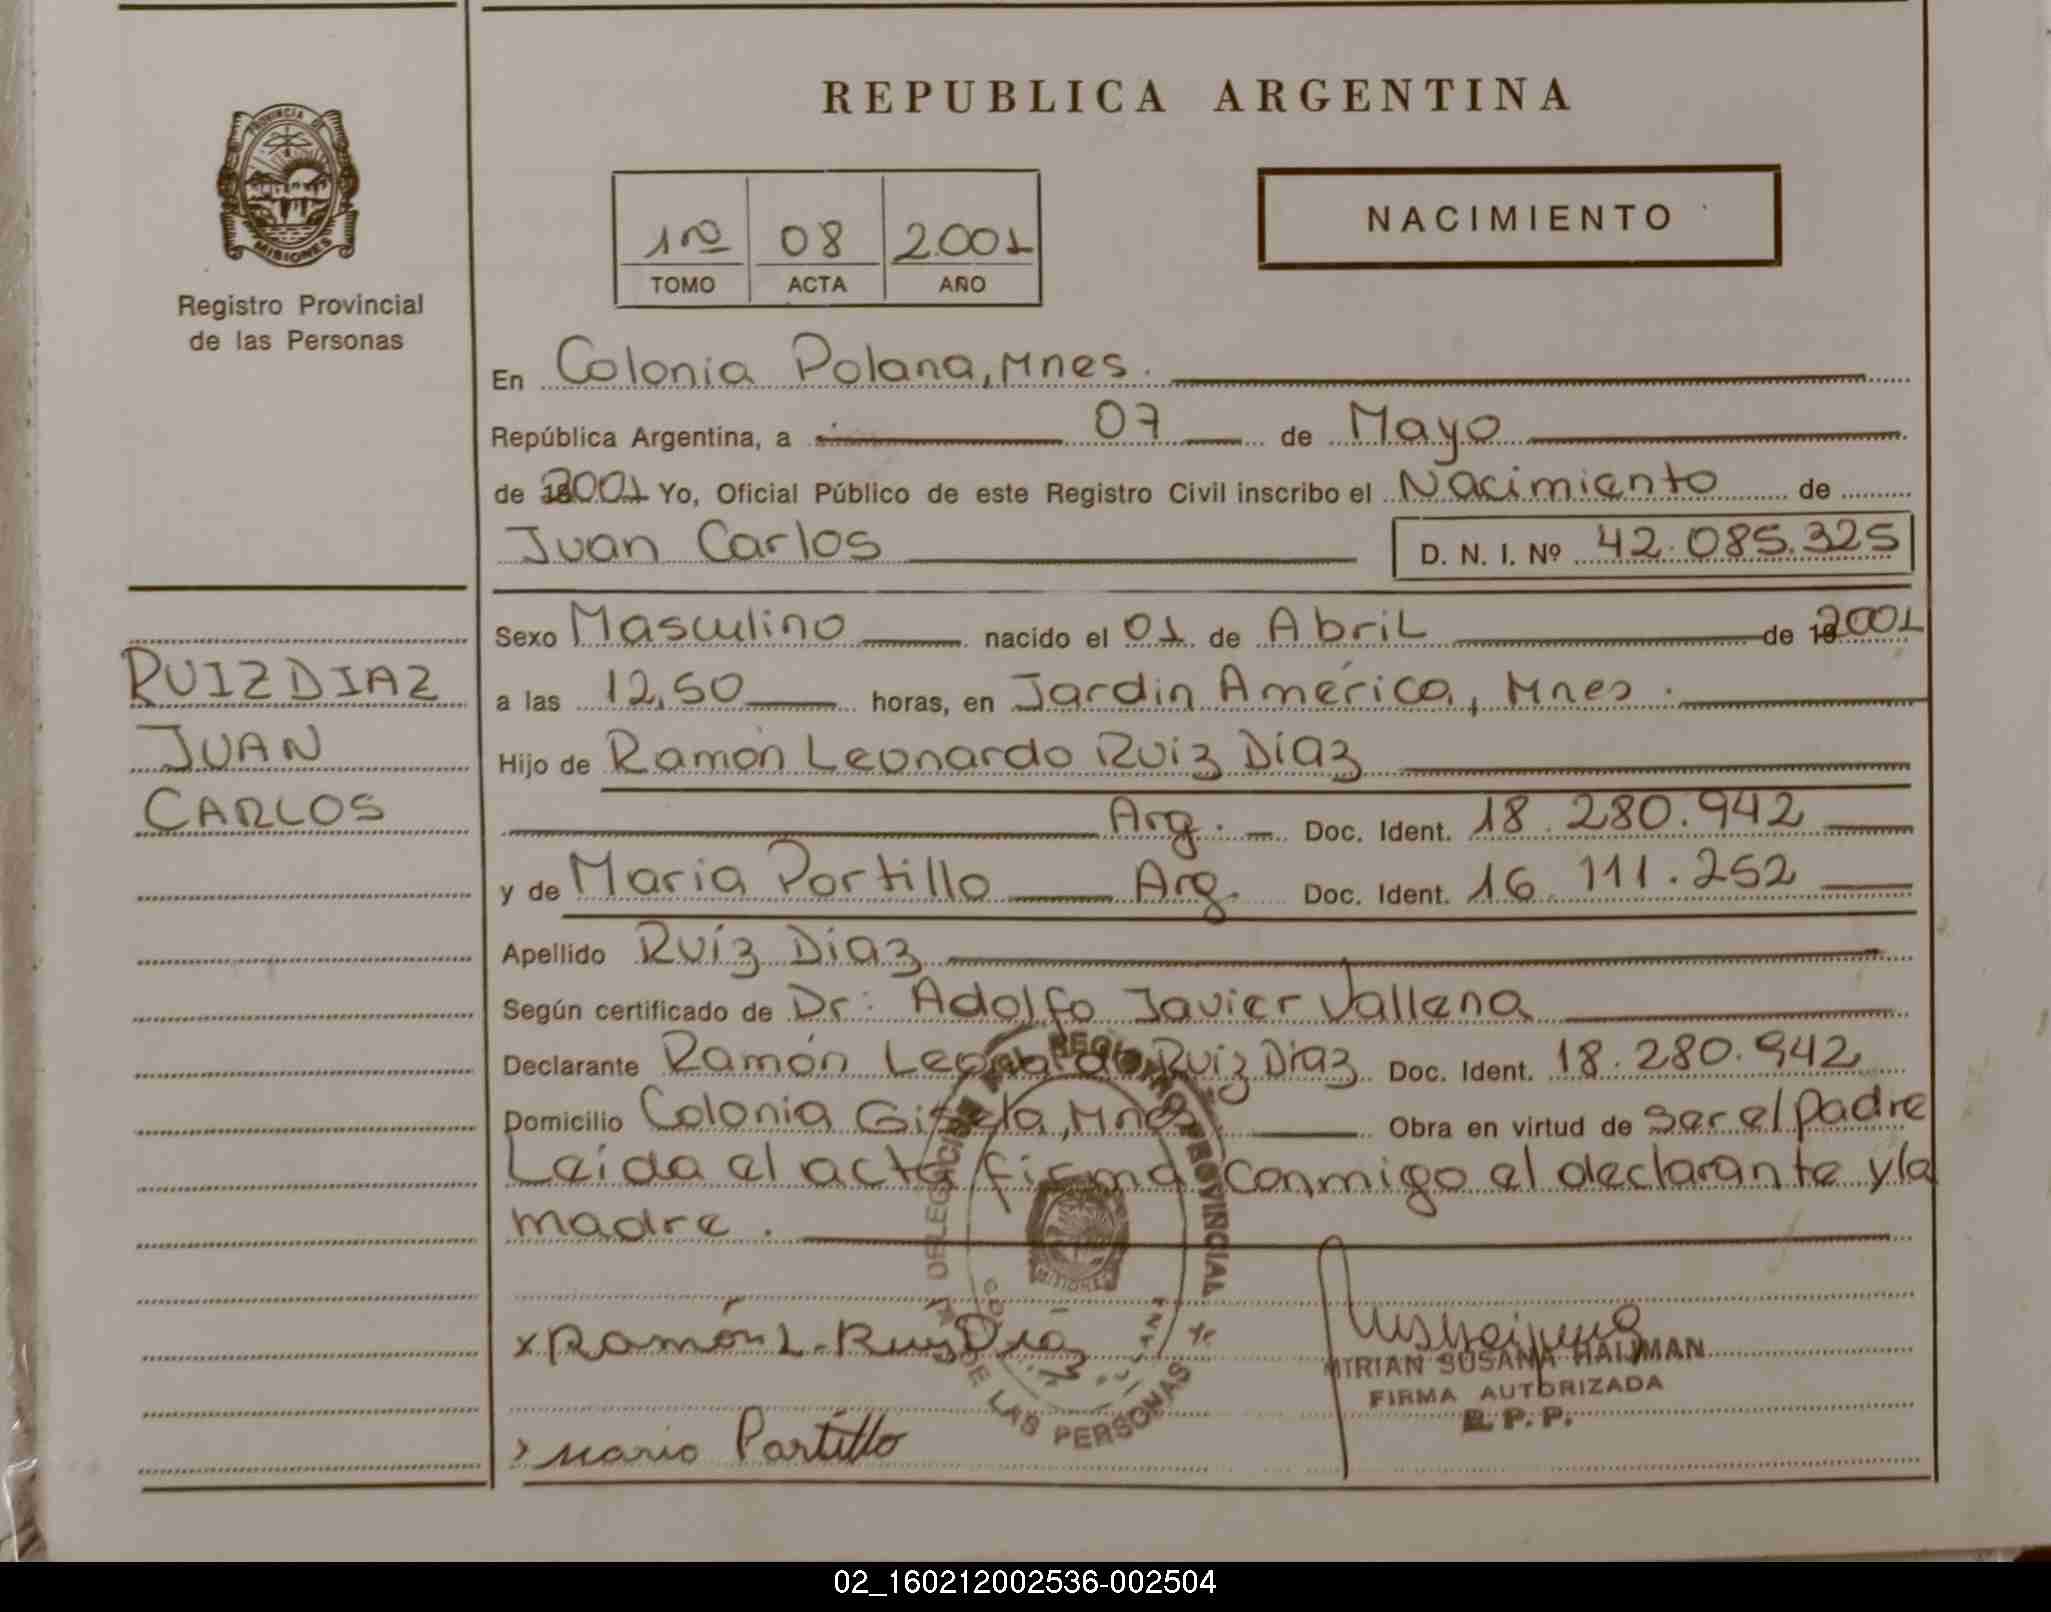 REPUBLICA ARGENTINA
PROVINCIA DE
MISIONES
Registro Provincial
de las Personas
1ro 08 2.001
TOMO ACTA AÑO
NACIMIENTO
En Colonia Polana, Mnes.
República Argentina, a 07 de Mayo
de 2001 Yo, Oficial Público de este Registro Civil inscribo el Nacimiento de
Juan Carlos D. N. I. Nº 42.085.325
RUIZ DIAZ
JUAN
CARLOS
Sexo Masculino nacido el 01 de Abril de 2001
a las 12,50 horas, en Jardín América, Mnes.
Hijo de Ramón Leonardo Ruiz Díaz
Arg. Doc. Ident. 18.280.942
y de María Portillo Arg. Doc. Ident. 16.111.252
Apellido Ruíz Díaz
Según certificado de Dr: Adolfo Javier Vallena
Declarante Ramón Leonardo Ruiz Díaz Doc. Ident. 18.280.942
Domicilio Colonia Gisela, Mnes Obra en virtud de ser el padre
Leída el acta firma conmigo el declarante y la
madre.
REGISTRO PROVINCIAL
DE LAS PERSONAS
MISIONES
x Ramón L. Ruiz Diaz
MIRIAN SUSANA HAIJMAN
FIRMA AUTORIZADA
R. P. P.
Maria Portillo
02_160212002536-002504